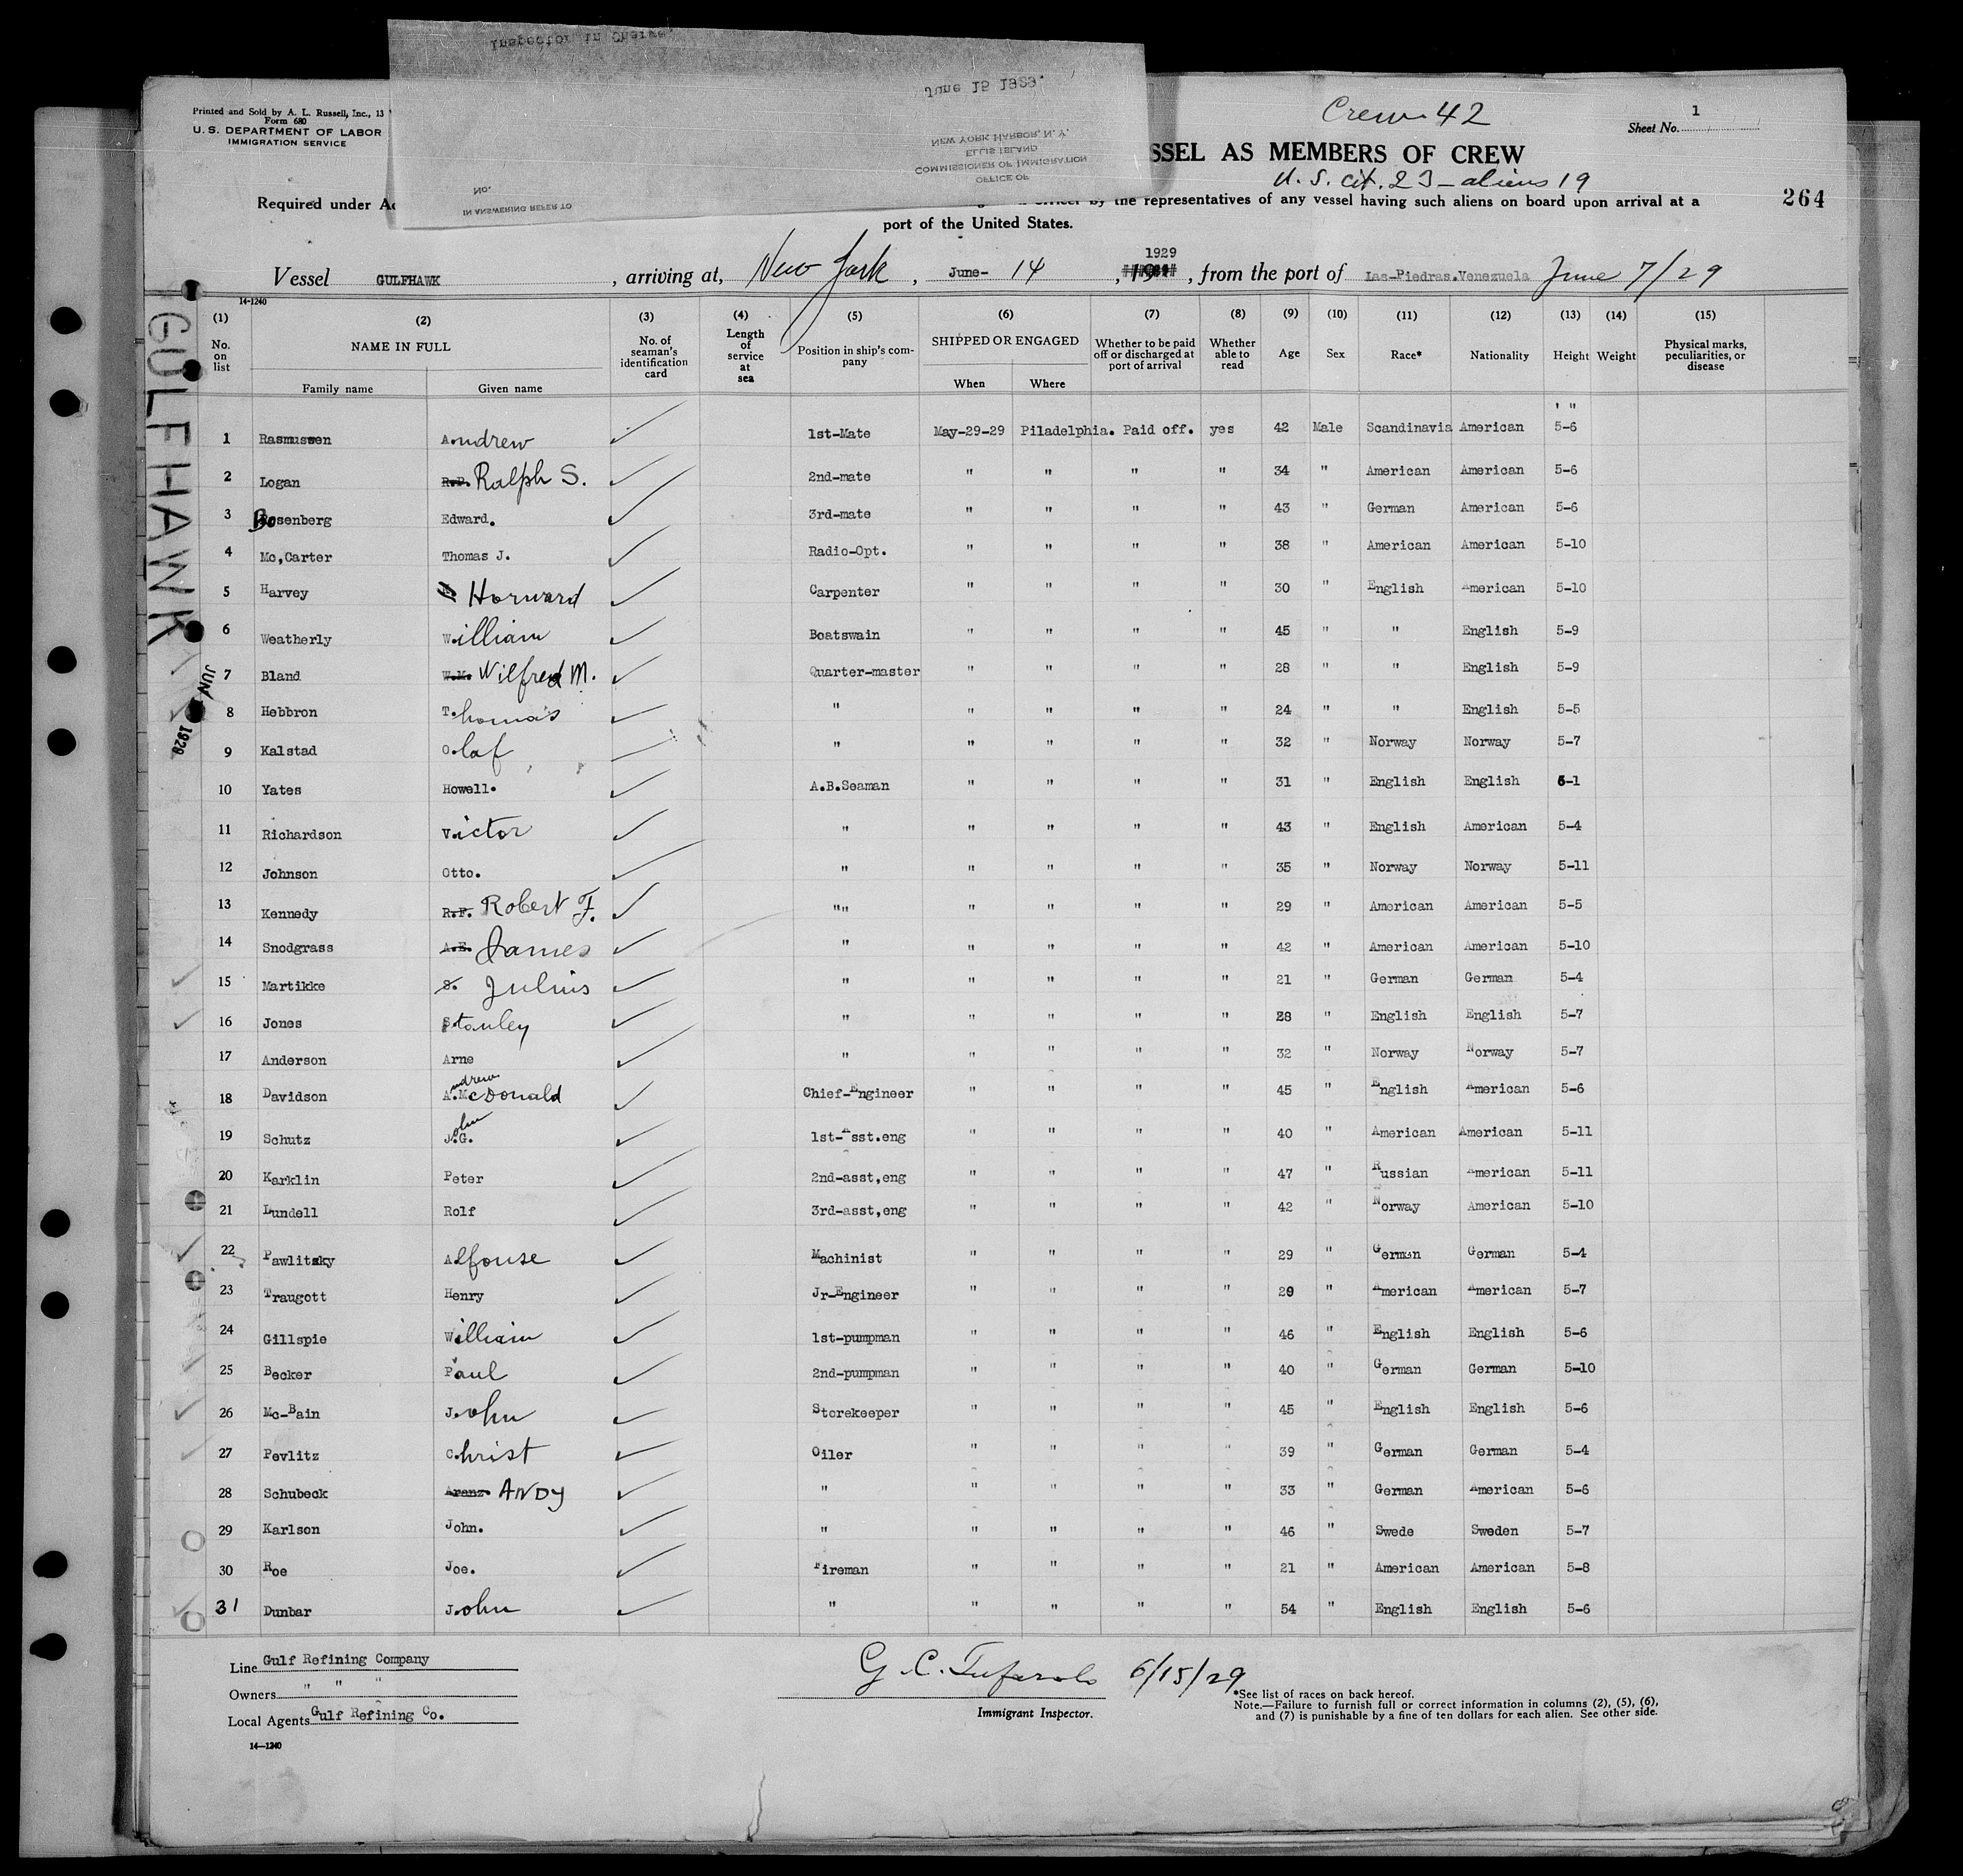 Inspector in Charge.
June 15 1929.
NEW YORK HARBOR, N. Y.
ELLIS ISLAND
COMMISSIONER OF IMMIGRATION
OFFICE OF
No.
IN ANSWERING REFER TO
Printed and Sold by A. L. Russell, Inc., 13
Form 680
U. S. DEPARTMENT OF LABOR
IMMIGRATION SERVICE
Crew 42
1
Sheet No.
SSEL AS MEMBERS OF CREW
U. S. cit. 23 - aliens 19
264
Required under Ac
by the representatives of any vessel having such aliens on board upon arrival at a
port of the United States.
Vessel GULFHAWK, arriving at, New York, June- 14, 1929, from the port of Las-Piedras.Venezuela June 7/29
14-1240
GULFHAWK
JUN 1929
(1) (2) (3) (4) (5) (6) (7) (8) (9) (10) (11) (12) (13) (14) (15)
No. on list NAME IN FULL Family name Given name No. of seaman's identification card Length of service at sea Position in ship's company SHIPPED OR ENGAGED When Where Whether to be paid off or discharged at port of arrival Whether able to read Age Sex Race* Nationality Height Weight Physical marks, peculiarities, or disease
' "
1 Rasmussen Andrew 1st-Mate May-29-29 Piladelphia. Paid off. yes 42 Male Scandinavia American 5-6
2 Logan R.D. Ralph S. 2nd-mate " " " " 34 " American American 5-6
3 Bosenberg Edward. 3rd-mate " " " " 43 " German American 5-6
4 Mc,Carter Thomas J. Radio-Opt. " " " " 38 " American American 5-10
5 Harvey Horward Carpenter " " " " 30 " English American 5-10
6 Weatherly William Boatswain " " " " 45 " " English 5-9
7 Bland W.M. Wilfred M. Quarter-master " " " " 28 " " English 5-9
8 Hebbron T.homas " " " " " 24 " " English 5-5
9 Kalstad O.laf " " " " " 32 " Norway Norway 5-7
10 Yates Howell. A.B.Seaman " " " " 31 " English English 6-1
11 Richardson Victor " " " " " 43 " English American 5-4
12 Johnson Otto. " " " " " 35 " Norway Norway 5-11
13 Kennedy R.F. Robert F. "" " " " " 29 " American American 5-5
14 Snodgrass A.E. James " " " " " 42 " American American 5-10
15 Martikke S. Julius " " " " " 21 " German German 5-4
16 Jones Stanley " " " " " 28 " English English 5-7
17 Anderson Arne " " " " " 32 " Norway Norway 5-7
18 Davidson A.ndrew McDonald Chief-Engineer " " " " 45 " English American 5-6
19 Schutz John G. 1st-Asst.eng " " " " 40 " American American 5-11
20 Karklin Peter 2nd-asst,eng " " " " 47 " Russian American 5-11
21 Lundell Rolf 3rd-asst,eng " " " " 42 " Norway American 5-10
22 Pawlitsky Alfonse Machinist " " " " 29 " German German 5-4
23 Traugott Henry Jr-Engineer " " " " 29 " American American 5-7
24 Gillspie William 1st-pumpman " " " " 46 " English English 5-6
25 Becker Paul 2nd-pumpman " " " " 40 " German German 5-10
26 Mc-Bain J.ohn Storekeeper " " " " 45 " English English 5-6
27 Pevlitz C.hrist Oiler " " " " 39 " German German 5-4
28 Schubeck ANDY " " " " " 33 " German American 5-6
29 Karlson John. " " " " " 46 " Swede Sweden 5-7
30 Roe Joe. Fireman " " " " 21 " American American 5-8
31 Dunbar J.ohn " " " " " 54 " English English 5-6
Line Gulf Refining Company
Owners " " "
Local Agents Gulf Refining Co.
14-1240
G. C. 6/15/29
Immigrant Inspector.
*See list of races on back hereof.
Note.—Failure to furnish full or correct information in columns (2), (5), (6),
and (7) is punishable by a fine of ten dollars for each alien. See other side.